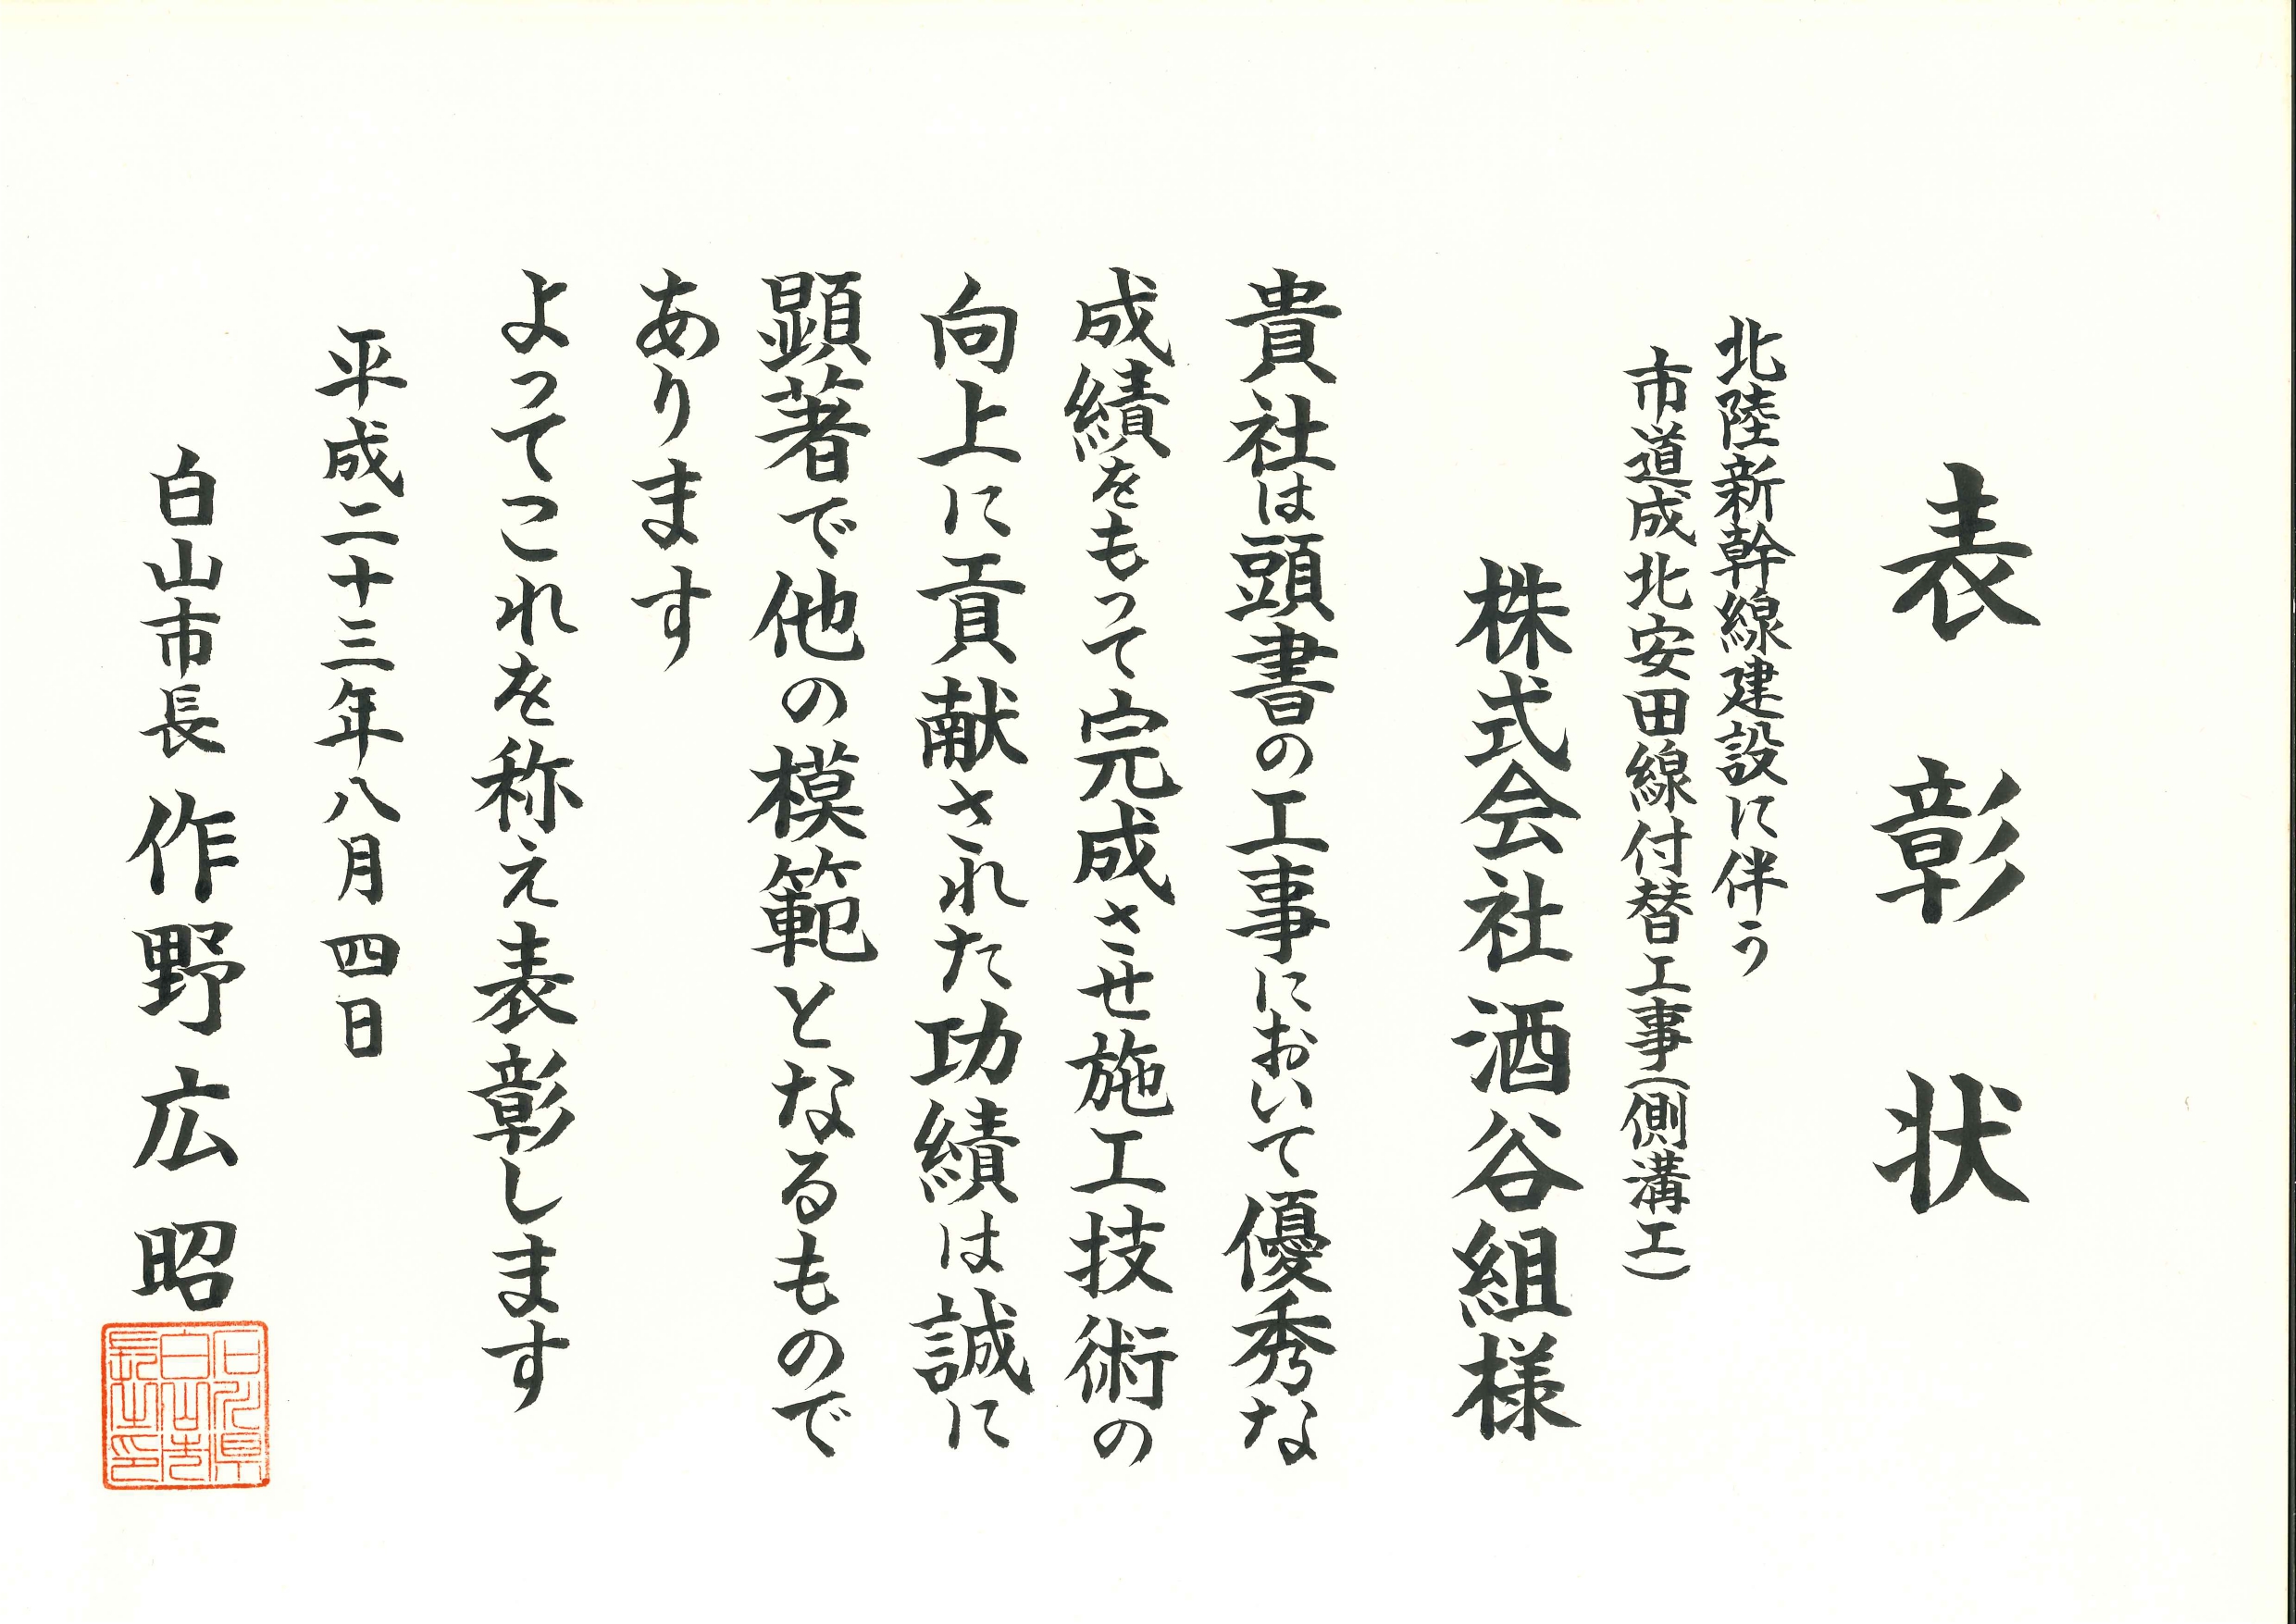 表彰状
北陸新幹線建設に伴う
市道成北安田線付替工事(側溝工)
株式会社酒谷組様
貴社は頭書の工事において優秀な
成績をもって完成させ施工技術の
向上に貢献された功績は誠に
顕著で他の模範となるもので
あります
よってこれを称え表彰します
平成二十三年八月四日
白山市長 作野広昭